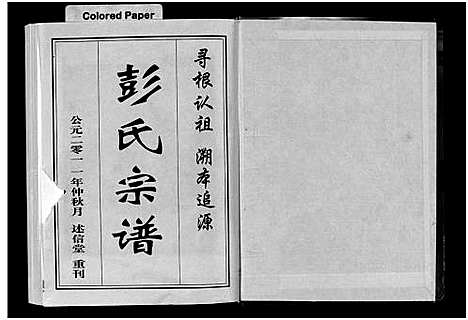 Colored Paper
寻根认祖 溯本追源
彭氏宗谱
公元二零一一年仲秋月 述信堂 重刊